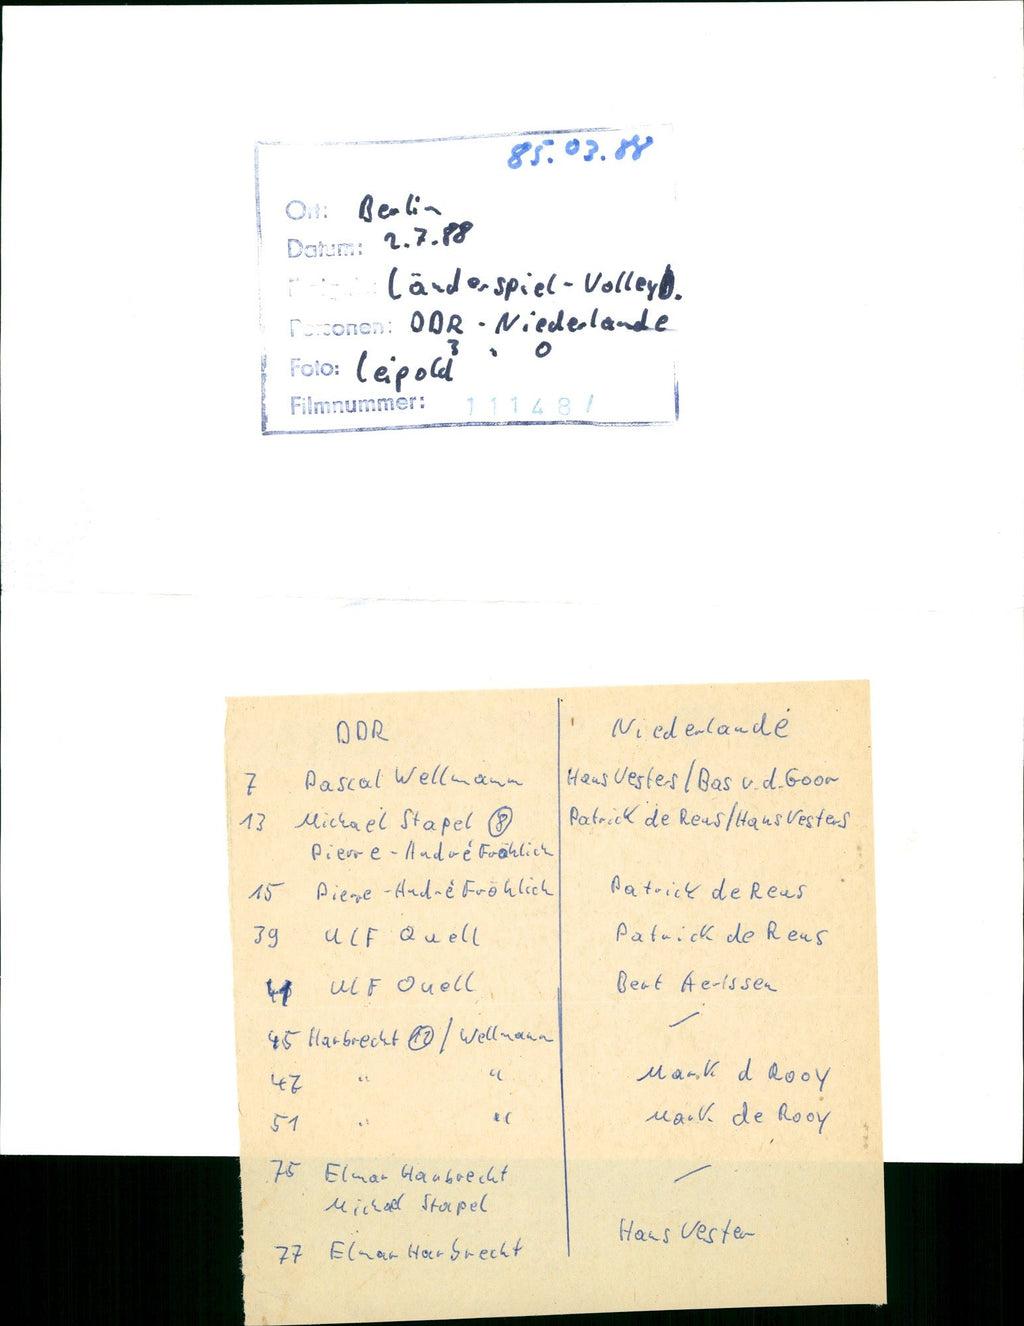 85.03.88
Ort: Berlin
Datum: 2.7.88
Länderspiel-Volleyb.
Personen: DDR - Niederlande
3 : 0
Foto: Leipold
Filmnummer: 11148/
DDR Niederlande
7 Pascal Wellmann Hans Vesters/Bas v.d.Goor
13 Michael Stapel (8) Patrick de Reus/Hans Vesters
Pierre-André Fröhlich
15 Pierre-André Fröhlich Patrick de Reus
39 Ulf Quell Patrick de Reus
41 Ulf Quell Bert Aerssen
45 Harbrecht (12) / Wellmann —
47 " " Mark d Rooy
51 " " Mark de Rooy
75 Elmar Harbrecht —
Michael Stapel
77 Elmar Harbrecht Hans Vester